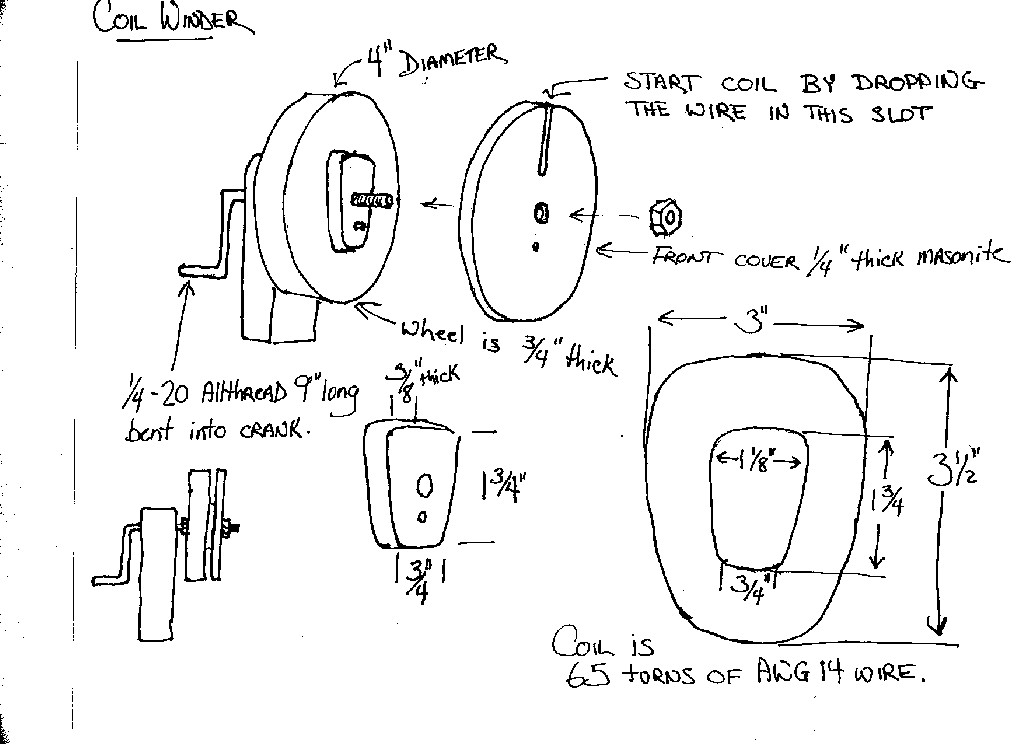 COIL WINDER
4" DIAMETER
START COIL BY DROPPING
THE WIRE IN THIS SLOT
FRONT COVER 1/4" thick masonite
Wheel is 3/4" thick
1/4-20 AllthreAD 9" long
bent into CRANK.
3/8" thick
1 3/4"
3/4"
3"
3 1/2"
1 1/8"
1 3/4
3/4"
COIL IS
65 tURNS OF AWG 14 WIRE.